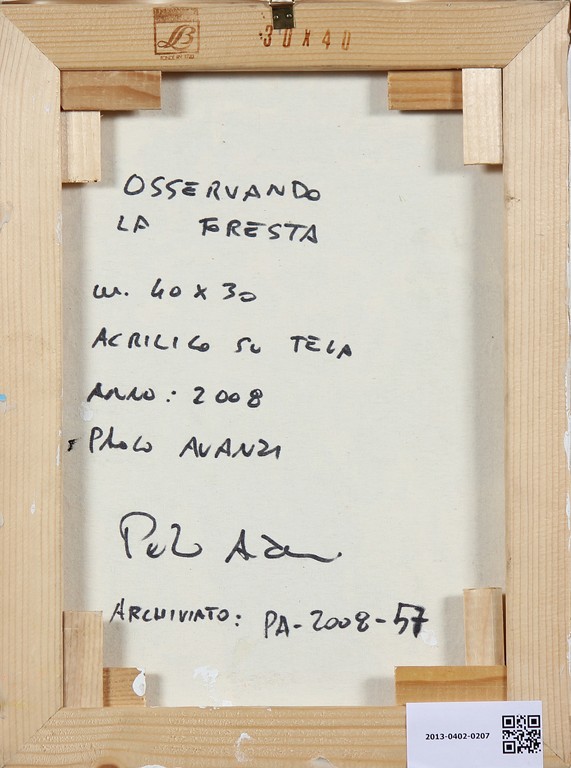 LB
30X40
OSSERVANDO
LA FORESTA
cm. 40 x 30
ACRILICO SU TELA
ANNO: 2008
PAOLO AVANZI
ARCHIVIATO: PA-2008-57
2013-0402-0207